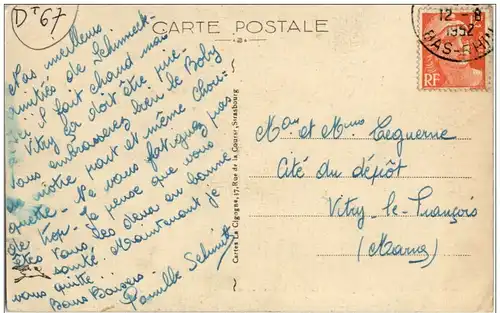 Dt 67
CARTE POSTALE
12 - 8
1952
BAS-RHIN
RF
Nos meilleurs
amitiés de Schirmeck
où il fait chaud mais
Vitry ça doit être pire.
Vous embrasserez bien le Boby
de notre part et même Chou-
quette. Ne vous fatiguez pas
de trop. Je pense que vous
êtes tous les deux en bonne
santé. Maintenant je
vous quitte.
Bons Baisers
Famille Schmitt
Cartes La Cigogne, 17, Rue de la Course, Strasbourg
et Mme Leguerne
Cité du dépôt
Vitry-le-François
(Marne)